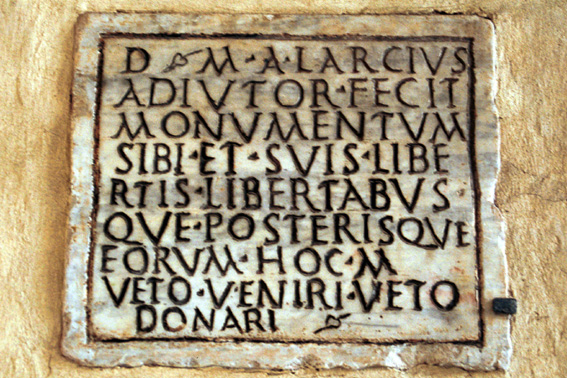 D M · A · LARCIVS
ADIVTOR · FECIT
MONVMENTVM
SIBI · ET · SVIS · LIBE
RTIS · LIBERTABVS
QVE · POSTERISQVE
EORVM · HOC · M
VETO · VENIRI · VETO
DONARI